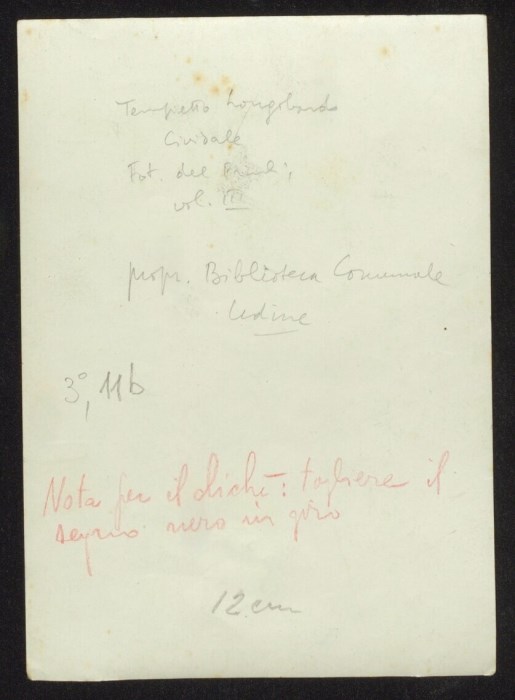 Tempietto Longobardo
Cividale
Fot. del Friuli,
vol. III
propr. Biblioteca Comunale
Udine
3°, 11b
Nota per il cliché: togliere il
segno nero in giro
12 cm